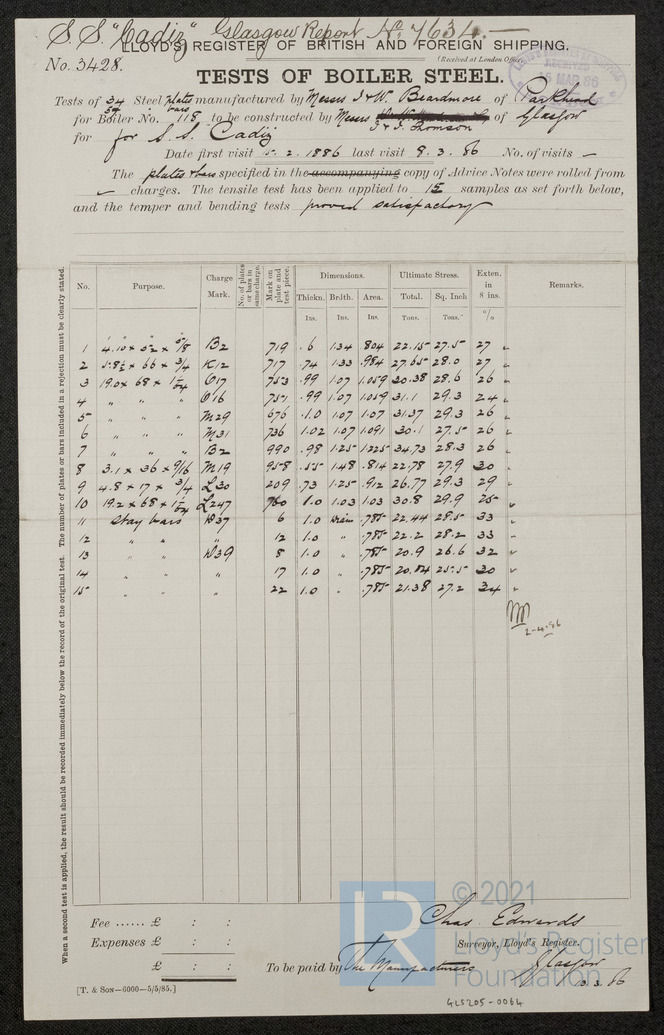 S.S. "Cadiz" Glasgow Report No 7634.—
LLOYD'S REGISTER OF BRITISH AND FOREIGN SHIPPING.
No. 3428.
(Received at London Office
TESTS OF BOILER STEEL.
Tests of 34 Steel plates manufactured by Messrs I & W. Beardmore of Parkhead
54 bars
for Boiler No. 118 to be constructed by Messrs of Glasgow
J & J. Thomson
for for S.S. Cadiz
Date first visit 15.2.1886 last visit 8.3.86 No. of visits —
The plates & bars specified in the accompanying copy of Advice Notes were rolled from
charges. The tensile test has been applied to 15 samples as set forth below,
and the temper and bending tests proved satisfactory
When a second test is applied, the result should be recorded immediately below the record of the original test. The number of plates or bars included in a rejection must be clearly stated.
No. Purpose. Charge Mark. No. of plates or bars in same charge. Mark on plate and test piece. Dimensions. Ultimate Stress. Exten. in 8 ins. Remarks.
Thickn. Br'dth. Area. Total. Sq. Inch
Ins. Ins. Ins. Tons. Tons. %
1 4.10 x 52 x 5/8 B2 719 .6 1.34 .804 22.15 27.5 27 "
2 5.8½ x 66 x 3/4 K12 717 .74 1.33 .984 27.65 28.0 27 "
3 19.0 x 68 x O17 753 .99 1.07 1.059 30.38 28.6 26 "
4 " " " O16 751 .99 1.07 1.059 31.1 29.3 24 "
5 " " " M29 676 1.0 1.07 1.07 31.37 29.3 26 "
6 " " " M31 736 1.02 1.07 1.091 30.1 27.5 26 "
7 " " " B2 990 .98 1.25 1.225 34.73 28.3 26 "
8 3.1 x 36 x 9/16 M19 958 .55 1.48 .814 22.78 27.9 30 "
9 4.8 x 17 x 3/4 L30 209 .73 1.25 .912 26.77 29.3 29 "
10 19.2 x 68 x L247 760 1.0 1.03 1.03 30.8 29.9 25 "
11 Stay bars D37 6 1.0 Diam .785 22.44 28.5 33 "
12 " " " 12 1.0 " .785 22.2 28.2 33 "
13 " " D39 8 1.0 " .785 20.9 26.6 32 "
14 " " " 17 1.0 " .785 20.04 25.5 30 "
15 " " " 22 1.0 " .785 21.38 27.2 34 "
2-4-86
Fee ...... £ : :
Expenses £ : :
£ : :
Chas. Edwards
Surveyor, Lloyd's Register.
To be paid by The Manufacturers Glasgow
10.3.86
[T. & Son—6000—5/5/85.]
GLS205-0064
© 2021
Lloyd's Register
Foundation
LR